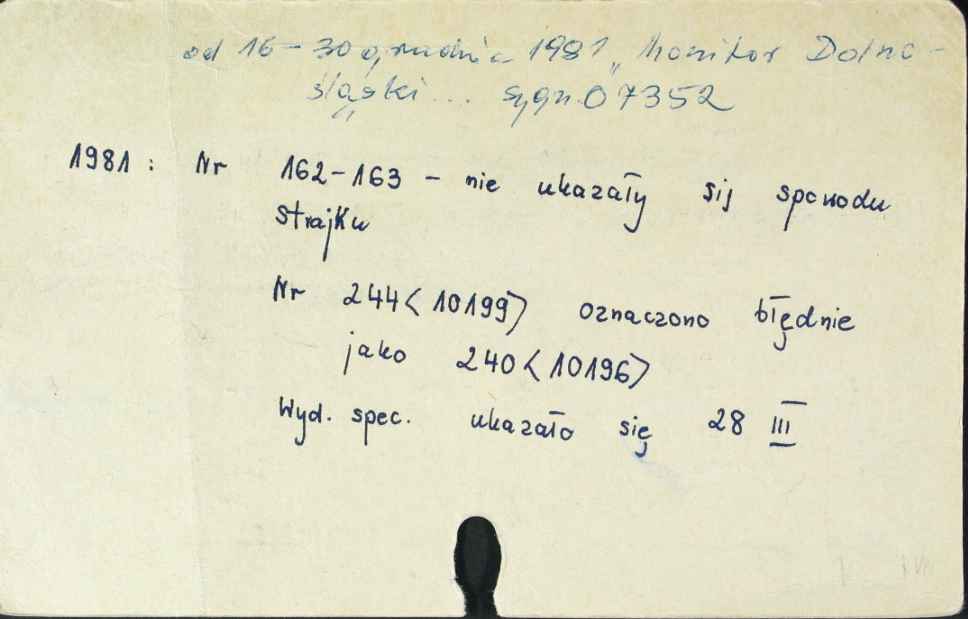 od 16-30 grudnia 1981 „Monitor Dolno-
śląski... sygn. 07352
1981: Nr 162-163 - nie ukazały się spowodu
strajku
Nr 244<10199> oznaczono błędnie
jako 240<10196>
Wyd. spec. ukazało się 28 III